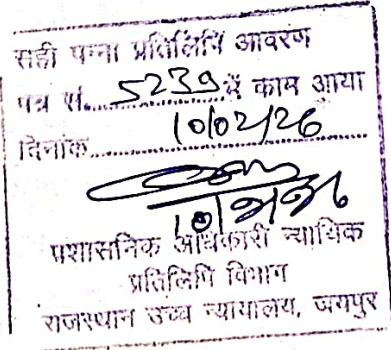 सही पन्ना प्रतिलिपि आवरण
पत्र सं. 5239 में काम आया
दिनांक 10/02/26
प्रशासनिक अधिकारी न्यायिक
प्रतिलिपि विभाग
राजस्थान उच्च न्यायालय, जयपुर